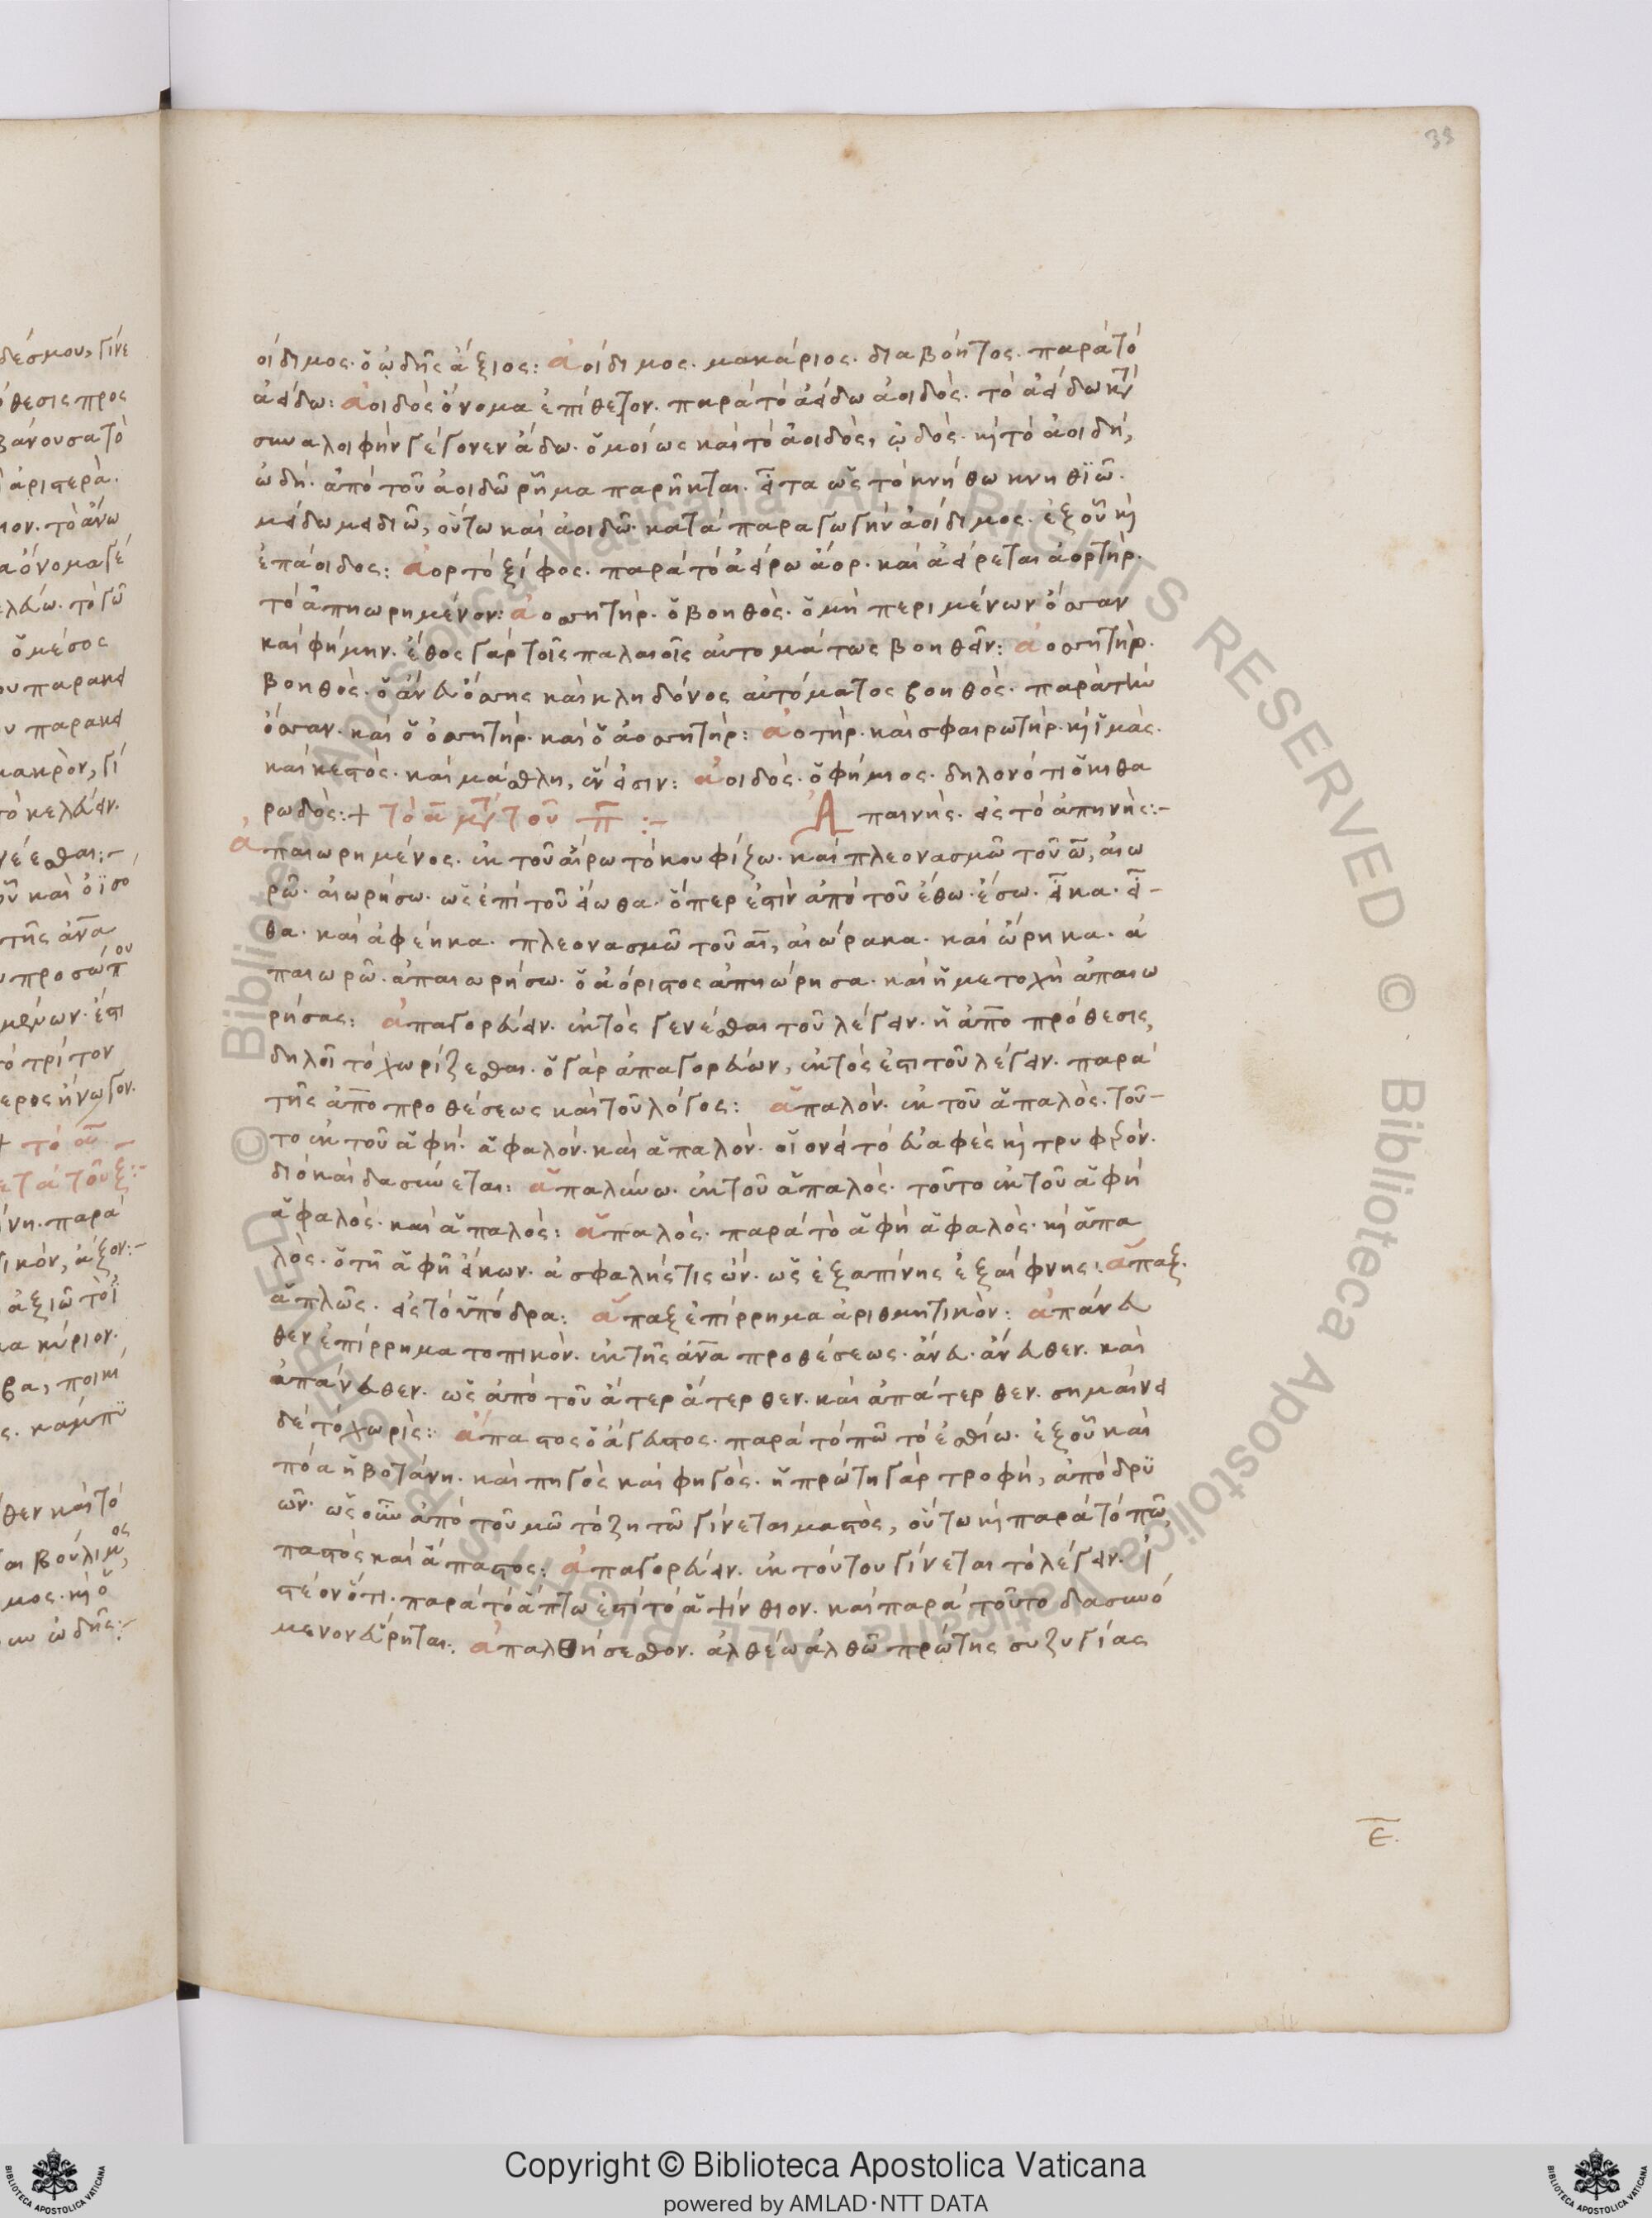 38
οίδιμος· ὁ ᾠδῆς ἄξιος: ἀοίδιμος. μακάριος. διαβόητος. παρὰ τὸ
ἀείδω: ἀοιδὸς ὄνομα ἐπίθετον. παρὰ τὸ ἀείδω ἀοιδὸς. τὸ ἀείδω κατὰ
συναλοιφὴν γέγονεν ἄδω. ὁμοίως καὶ τὸ ἀοιδὸς, ᾠδὸς. καὶ τὸ ἀοιδή,
ὠδή. ἀπὸ τοῦ ἀοιδῶ ῥῆμα παρῆκται. εἶτα ὡς τὸ κνήθω κνηθιῶ.
μείδω μειδιῶ, οὕτω καὶ ἀοιδῶ κατὰ παραγωγὴν ἀοίδιμος. ἐξ οὗ καὶ
ἐπάοιδος: ἄορ τὸ ξίφος. παρὰ τὸ ἀείρω ἄορ. καὶ ἀείρεται ἀορτήρ.
τὸ ἀπηωρημένον: ἀοσητήρ. ὁ βοηθὸς. ὁ μὴ περιμένων ὄσσαν
καὶ φήμην. ἔθος γὰρ τοῖς παλαιοῖς αὐτομάτως βοηθεῖν: ἀοσσητήρ.
βοηθὸς. ὁ ἄνευ ὄσσης καὶ κληδόνος αὐτόματος βοηθὸς. παρὰ τὴν
ὄσσαν. καὶ ὁ ὀσσητήρ. καὶ ὁ ἀοσσητήρ: ἀοτήρ. καὶ σφαιρωτήρ. καὶ ἱμὰς.
καὶ κεστὸς. καὶ μάσθλη, ἕν εἰσιν: ἀοιδὸς. ὁ φήμιος. δηλονότι ὁ κιθα
ρωδὸς:+ τὸ α μετὰ τοῦ π :– Ἀπαινὴς. εἰς τὸ ἀπηνὴς:–
ἀπαιωρημένος. ἐκ τοῦ αἴρω τὸ κουφίζω. καὶ πλεονασμῶ τοῦ ω, αἰω
ρῶ. αἰωρήσω. ὡς ἐπὶ τοῦ εἴωθα. ὅπερ ἐστὶν ἀπὸ τοῦ ἔθω. ἔσω. εἶκα. εἶ–
θα. καὶ ἀφέηκα. πλεονασμῶ τοῦ αι, αἰώρακα. καὶ ὤρηκα. ἀ
παιωρῶ. ἀπαιωρήσω. ὁ ἀόριστος ἀπηώρησα. καὶ ἡ μετοχὴ ἀπαιω
ρήσας: ἀπαγορεύειν. ἐκτὸς γενέσθαι τοῦ λέγειν. ἡ ἀπὸ πρόθεσις,
δηλοῖ τὸ χωρίζεσθαι. ὁ γὰρ ἀπαγορεύων, ἐκτὸς ἐστι τοῦ λέγειν. παρὰ
τῆς ἀπὸ προθέσεως καὶ τοῦ λόγος: ἁπαλὸν. ἐκ τοῦ ἁπαλὸς. τοῦ–
το ἐκ τοῦ ἁφή. ἁφαλόν. καὶ ἁπαλόν. οἱονεὶ τὸ εὐαφὲς καὶ τρυφερόν.
διὸ καὶ δασύνεται: ἁπαλύνω. ἐκ τοῦ ἁπαλὸς. τοῦτο ἐκ τοῦ ἁφή
ἁφαλὸς. καὶ ἁπαλὸς: ἁπαλὸς. παρὰ τὸ ἁφή ἁφαλὸς. καὶ ἁπα
λὸς. ὁ τῆ ἁφῆ εἴκων. ἀσφαλής τις ὤν. ὡς ἐξαπίνης ἐξαίφνης: ἅπαξ.
ἁπλῶς. εἰς τὸ ὑπόδρα: ἅπαξ ἐπίρρημα ἀριθμητικὸν: ἀπάνευ
θεν ἐπίρρημα τοπικὸν. ἐκ τῆς ἀνὰ προθέσεως. ἄνευ. ἄνευθεν. καὶ
ἀπάνευθεν. ὡς ἀπὸ τοῦ ἄτερ ἄτερθεν. καὶ ἀπάτερθεν. σημαίνει
δὲ τὸ χωρὶς: ἄπαστος ὁ ἄγευστος. παρὰ τὸ πῶ τὸ ἐσθίω. ἐξ οὗ καὶ
πόα ἡ βοτάνη. καὶ πηγὸς καὶ φηγὸς. ἡ πρώτη γὰρ τροφή, ἀπὸ δρυ
ῶν. ὡς οὖν ἀπὸ τοῦ μῶ τὸ ζητῶ γίνεται μαστὸς, οὕτω καὶ παρὰ τὸ πῶ,
παστὸς καὶ ἄπαστος: ἀπαγορεύειν. ἐκ τούτου γίνεται τὸ λέγειν. ἰ
στέον ὅτι. παρὰ τὸ ἅπτω ἐστὶ τὸ ἁψίνθιον. καὶ παρὰ τοῦτο δασυνό
μενον εὕρηται: ἀπαλθήσεσθον. ἀλθέω ἀλθῶ πρώτης συζυγίας
ε.
Copyright © Biblioteca Apostolica Vaticana
powered by AMLAD·NTT DATA